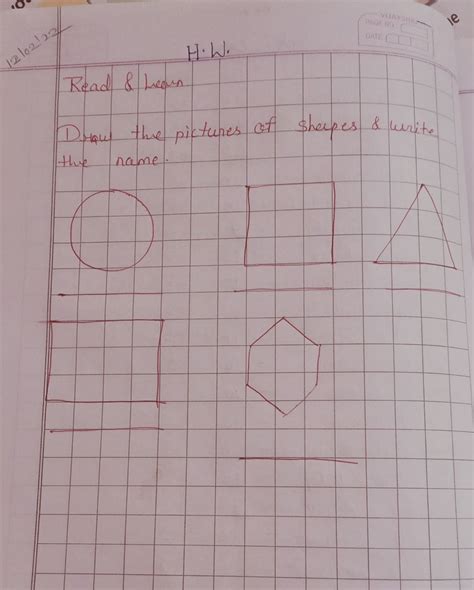 12/02/22
H.W.
PAGE NO.
DATE
Read & Learn
Draw the pictures of sheepes & write
the name.